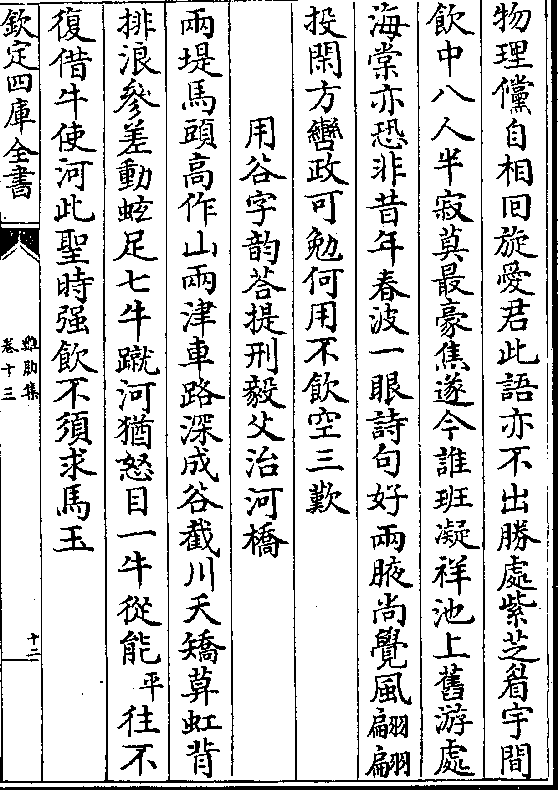 物理儻自相回旋愛君此語亦不出勝處紫芝眉宇間
飲中八人半寂莫最豪焦遂今誰班凝祥池上舊游處
海棠亦恐非昔年春波一眼詩句好兩腋尚覺風翩翩
投閑方轡政可勉何用不飲空三歎
用谷字韵荅提刑毅父治河橋
兩堤馬頭高作山兩津車路深成谷截川夭矯草虹背
排浪參差動蚿足七牛蹴河猶怒目一牛從能平往不
復借牛使河此聖時强飲不須求馬玉
欽定四庫全書
雞肋集
卷十三
十二